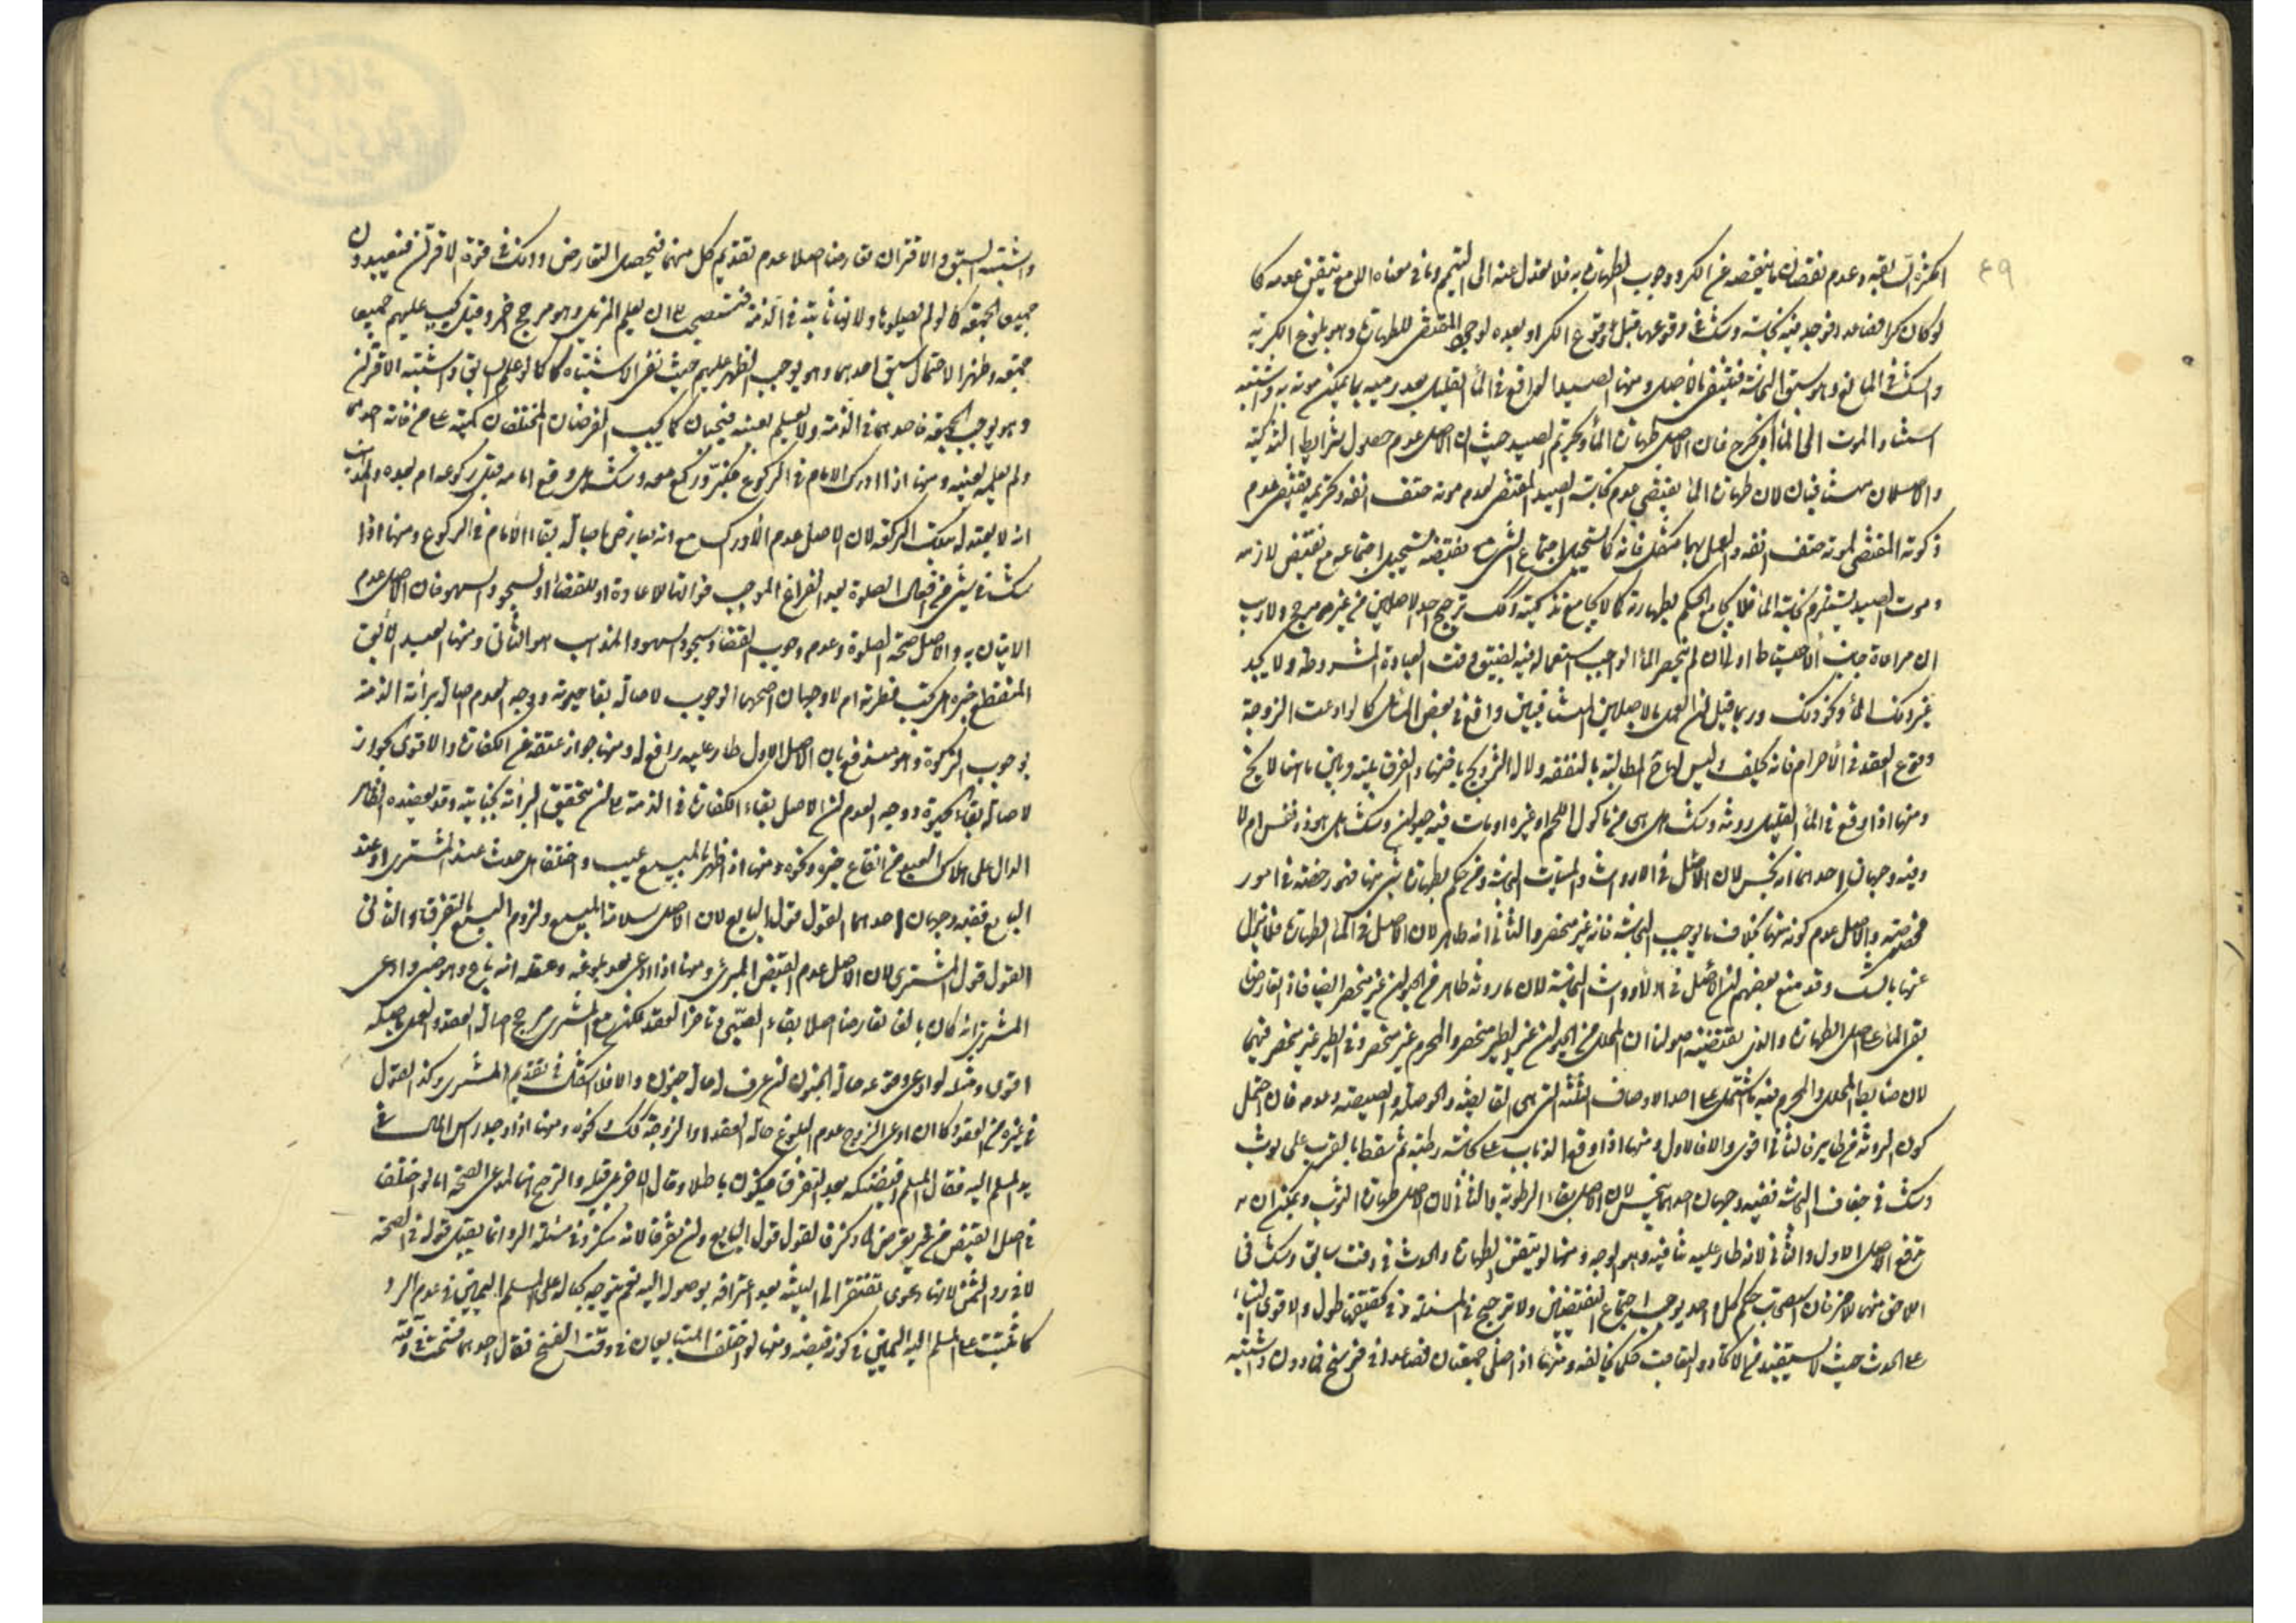 ٤٩
الكثرة السابقة وعدم نقصان ما ينقصه عن الكر ووجوب الطهارة به فلا يعدل عنه الى التيمم وما في معناه الا مع تيقن عدمه كما
لو كان كرا فصاعدا فوجد فيه نجاسة وشك في وقوعها قبل بلوغ الكر او بعده لوجود المقتضي للطهارة وهو بلوغ الكرية
والشك في المانع وهو سبق النجاسة فينتفي بالاصل ومنها الصيد الواقع في الماء القليل بعد رميه بما يمكن موته به واشتبه
استناد الموت الى الماء او الجرح فان الاصل طهارة الماء وتحريم الصيد حيث ان الاصل عدم حصول شرايط التذكية
والاصلان متنافيان لان طهارة الماء يقتضي عدم نجاسة الصيد المقتضي لعدم موته حتف انفه وتحريمه يقتضي عدم
ذكوته المقتضي لموته حتف انفه والعمل بهما مشكل فانه كما يستحيل اجتماع الشئ مع نقيضه يستحيل اجتماعه مع نقيض لازمه
وموت الصيد يستلزم نجاسة الماء فلا يجامع الحكم بطهارته كما لا يجامع تذكيته وكذلك ترجيح احد الاصلين من غير مرجح ولا ريب
ان مراعاة جانب الاحتياط اولى ان لم ينحصر الماء الواجب استعماله فيه لضيق وقت العبادة المشروطة ولا يجد
غير ذلك الماء ونحو ذلك وربما قيل ان العمل بالاصلين المتنافيين واقع في بعض المسائل كما لو ادعت الزوجة
وقوع العقد في الاحرام فانه يحلف وليس لها المطالبة بالنفقة ولا له التزويج باختها والفرق بينه وبين ما هنا لا يخ
ومنها اذا وقع في الماء القليل روثه وشك هل هي من مأكول اللحم او غيره او مات فيه حيوان وشك هل هو ذو نفس ام لا
وفيه وجهان احدهما انه نجس لان الاصل في الارواث والميتات النجاسة ومن حكم بطهارة شئ منها فهو رخصة في امور
مخصوصة والاصل عدم كونه منها بخلاف ما يوجب النجاسة فانه غير منحصر والثاني انه طاهر لان الاصل في الماء الطهارة فلا يزال
عنها بالشك وقد منع بعضهم ان الاصل في الارواث النجاسة لان ما روثه طاهر من الحيوان غير منحصر ايضا فاذا تعارضا
بقي الماء على اصل الطهارة والذي يقتضيه اصولنا ان المحلل من الحيوان غير الطير منحصر والمحرم غير منحصر وفي الطير غير منحصر فيهما
لان ضابط المحلل والمحرم فيه ما اشتمل على احد الاوصاف الثلثة التي هي القانصة والحوصلة والصيصية وعدمه فان احتمل
كون الروث من طير فالثاني اقوى والا فالاول ومنها اذا وقع الذباب على نجاسة رطبة ثم سقط بالقرب على ثوب
وشك في جفاف النجاسة ففيه وجهان احدهما ينجس لان الاصل بقاء الرطوبة والثاني لا لان الاصل طهارة الثوب ويمكن ان
يرفع الاصل الاول والثاني لانه طار عليه مناف وهو الوجه ومنها لو تيقن الطهارة والحدث في وقت سابق وشك في
اللاحق منهما لا خر فان استصحاب حكم كل واحد يوجب اجتماع النقيضين ولا ترجيح في المسئلة وفي تحقيقها طول والاقوى البناء
على الحدث حيث لا يستفيد من الاتحاد والتعاقب حكما يخالفه ومنها اذا صلى جمعتان فصاعدا في فرسخ فما دون واشتبه
واشتبه السبق والاقتران تعارضا اصلا عدم تقديم كل منهما فيحصل التعارض وذلك في قوة الاقتران فتعيدون
جميعا الجمعة كما لو لم يصلوها ولانها ثابتة في الذمة فيستصحب الى ان يعلم المزيل وهو مرجح اخر وقيل يجب عليهم جميعا
جمعة وظهرا لاحتمال سبق احدهما وهو يوجب الظهر عليهم حيث نفى الاشتباه كما لو علم السابق واشتبه الاقتران
وهو يوجب الجمعة فاحدهما في الذمة ولا يعلم بعينه فيجبان كما يجب الفرضان المختلفان كمية على من فاته احدهما
ولم يعلمه بعينه ومنها اذا ادرك الامام في الركوع فكبر وركع معه وشك هل رفع امامه قبل ركوعه ام بعده والمذهب
انه لا يعتد له بتلك الركعة لان الاصل عدم الادراك مع انه معارض باصالة بقاء الامام في الركوع ومنها اذا
شك في شئ من افعال الصلوة بعد الفراغ الموجب فواتها للاعادة او للقضاء او لسجود السهو فان الاصل عدم
الاتيان به والاصل صحة الصلوة وعدم وجوب القضاء وسجود السهو والمذهب هو الثاني ومنها العبد الآبق
المنقطع خبره هل يجب فطرته ام لا وجهان اصحهما الوجوب لاصالة بقاء حيوته ووجه العدم اصالة براءة الذمة
بوجوب الزكوة وهو مندفع بان الاصل الاول طار عليه رافع له ومنها جواز عتقه عن الكفارة والاقوى الجواز
لاصالة بقاء الحيوة ووجه العدم ان الاصل بقاء الكفارة في الذمة الى ان يتحقق البراءة بجنايته وقد يعضده الظاهر
الدال على هلاك العبد من انقطاع خبره ونحوه ومنها اذا ظهر بالمبيع عيب واختلفا هل حدث عند المشتري او عند
البايع ففيه وجهان احدهما القول قول البايع لان الاصل سلامة المبيع ولزوم البيع بالتفرق والثاني
القول قول المشتري لان الاصل عدم القبض المبرئ ومنها اذا ادعى بعد بلوغه وعقله انه باع وهو صبي وادعى
المشتري انه كان بالغا تعارضا اصلا بقاء الصبى وتأخر العقد لكن مع المشتري مرجح اصالة العقد والعمل باصله
اقوى ومثله لو ادعى وقوعه حالة الجنون ان عرف له حالة جنون والا فلا اشكال في تقديم المشتري وكذا القول
في غيره من العقود كما ان ادعى الزوج عدم البلوغ حالة العقد او الزوجة كذلك ونحوه ومنها اذا وجد راس المال في
يد المسلم اليه فقال المسلم اقبضتكه بعد التفرق فيكون باطلا وقال الاخر بل قبله والترجيح هنا لمدعي الصحة اما لو اختلفا
في اصل القبض من غير تعرض له وكذا فالقول قول البايع وان تفرقا لانه منكر وفي مسئلة الرد انما يقبل قوله في الصحة
لا في رد الثمن لانها دعوى تفتقر الى البينة بعد اعترافه بوصوله اليه نعم يتوجه بحاله على المسلم اليمين في عدم الرد
كما يثبت على المسلم اليه اليمين في كونه قبضه ومنها لو اختلف المتبايعان في وقت الفسخ فقال احدهما فسخت في وقته